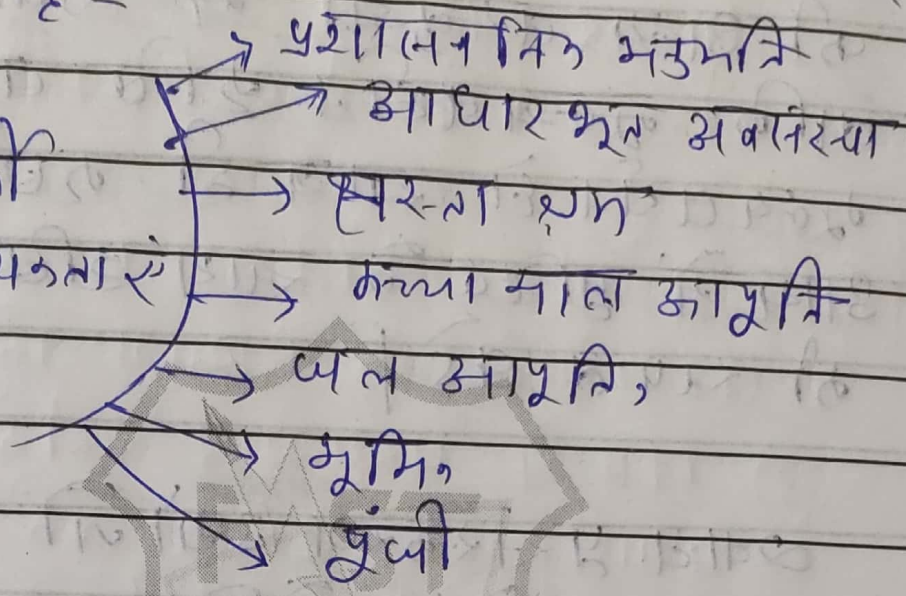 प्रशासनिक अनुमति
आधारभूत अवसंरचना
सस्ता श्रम
कच्चा माल आपूर्ति
जल आपूर्ति,
भूमि,
पूंजी